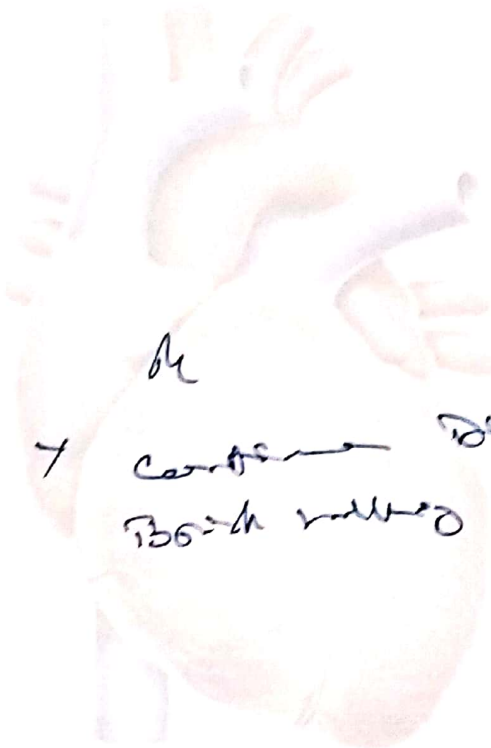 Rx
Continue
Brisk walking